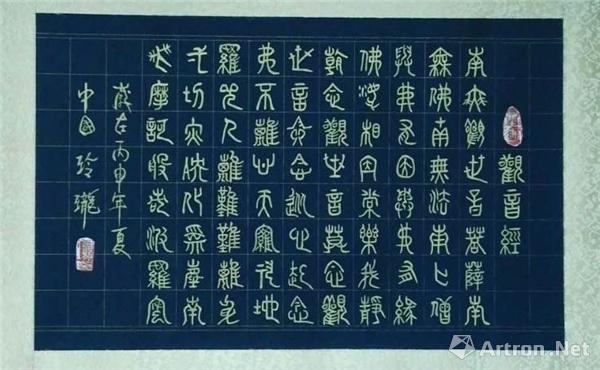 觀音經
南無觀世音菩薩南
無佛南無法南無僧
與佛有因與佛有緣
佛法相因常樂我靜
朝念觀世音暮念觀
世音念念從心起念
佛不離心天羅神地
羅神人離難難離身
一切災殃化爲塵南
无摩訶般若波羅蜜
歲在丙申年夏
中國玲瓏
Artron.Net